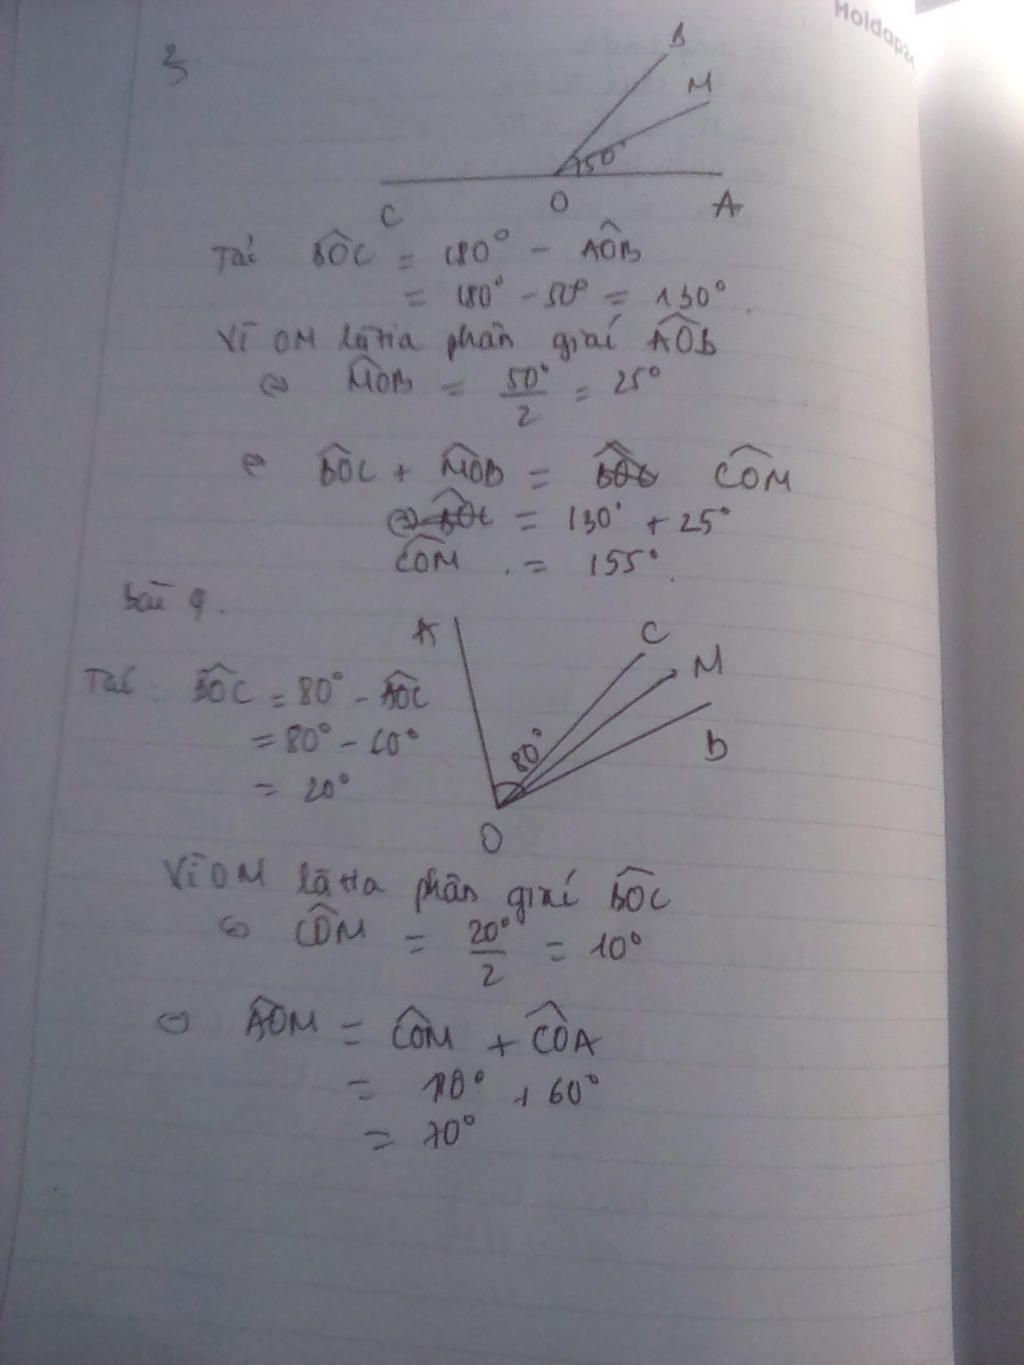 Holdaps
3
B
M
50°
C
O
A
BÔC = 180° - AÔB
= 180° - 50° = 130°
Vì OM là tia phân giác AÔB
MÔB = 50°/2 = 25°
BÔC + MÔB = CÔM
= 130° + 25°
CÔM = 155°
Bài 4.
A
C
M
B
80°
O
BÔC = 80° - AÔC
= 80° - 60°
= 20°
Vì OM là tia phân giác BÔC
CÔM = 20°/2 = 10°
AÔM = CÔM + CÔA
= 10° + 60°
= 70°